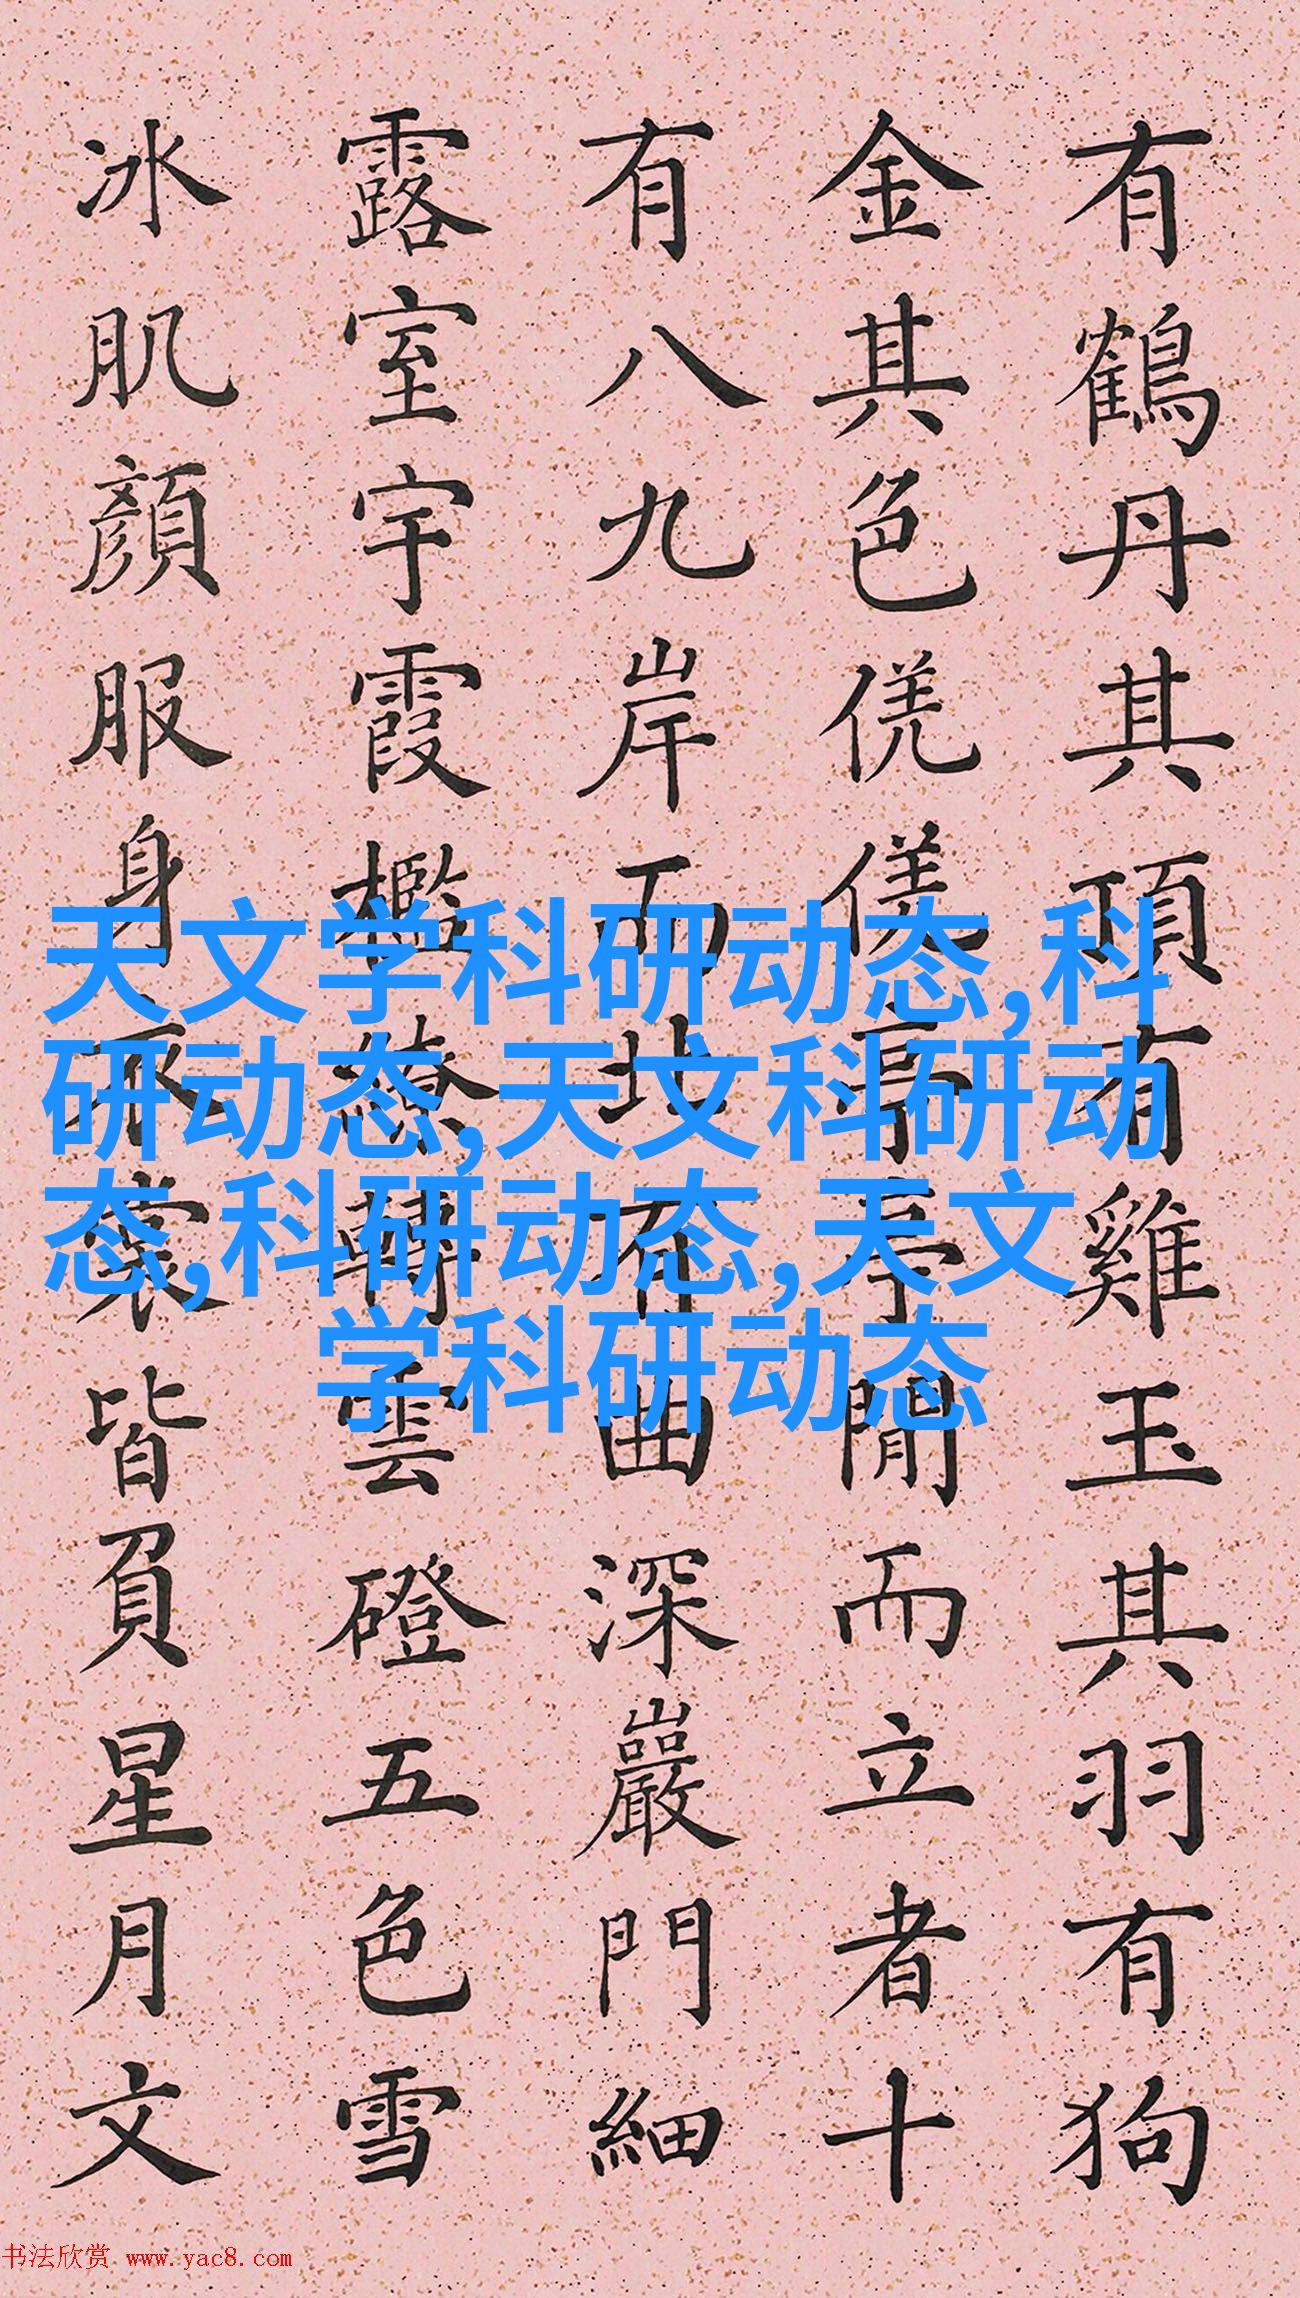 有鶴丹其頂有雞玉其羽有狗
金其色亭亭閒而立者十
有八九岸北有曲深巖門細
露室宇霞檻繚轉雲磴五色雪
冰肌顏服身衣裳皆負星月文
天文学科研动态,科
研动态,天文科研动
态,科研动态,天文
学科研动态
书法欣赏 www.yac8.com